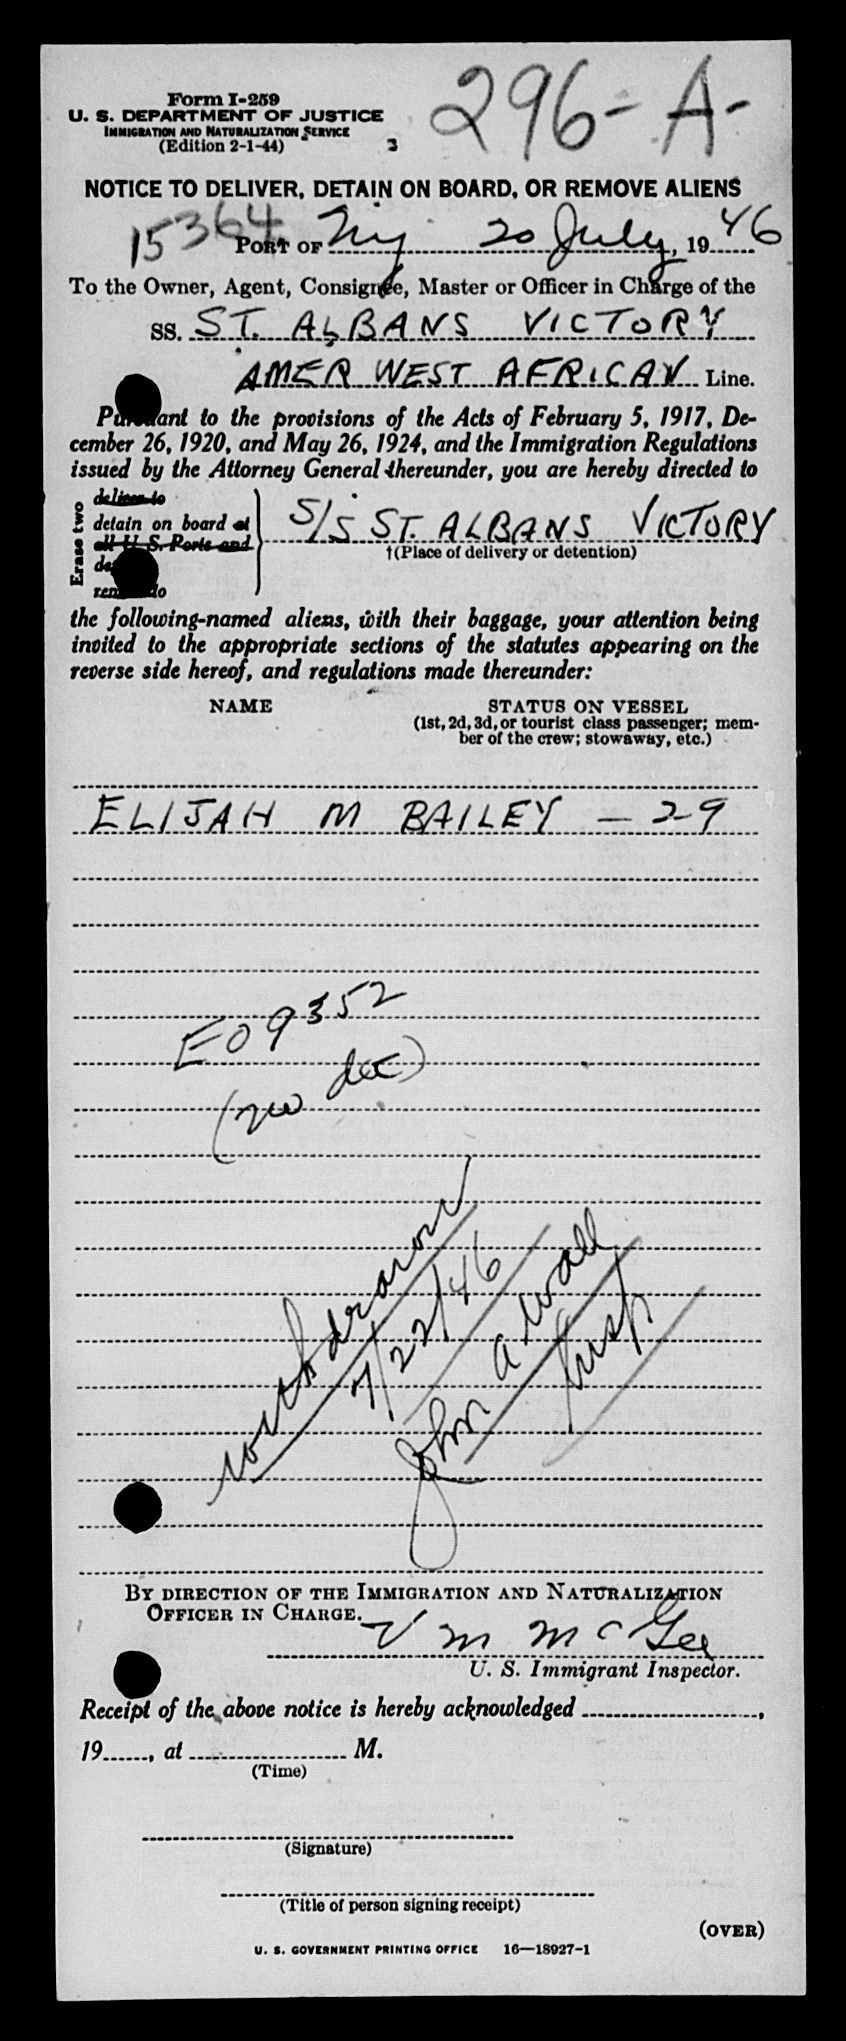 Form I-259
296-A-
U. S. DEPARTMENT OF JUSTICE
IMMIGRATION AND NATURALIZATION SERVICE
(Edition 2-1-44) 3
NOTICE TO DELIVER, DETAIN ON BOARD, OR REMOVE ALIENS
15364
PORT OF NY 20 July, 1946
To the Owner, Agent, Consignee, Master or Officer in Charge of the
SS. ST. ALBANS VICTORY
AMER WEST AFRICAN Line.
Pursuant to the provisions of the Acts of February 5, 1917, De-
cember 26, 1920, and May 26, 1924, and the Immigration Regulations
issued by the Attorney General thereunder, you are hereby directed to
Erase two
deliver to
detain on board at S/S ST. ALBANS VICTORY
all U. S. Ports and †(Place of delivery or detention)
the following-named aliens, with their baggage, your attention being
invited to the appropriate sections of the statutes appearing on the
reverse side hereof, and regulations made thereunder:
NAME STATUS ON VESSEL
(1st, 2d, 3d, or tourist class passenger; mem-
ber of the crew; stowaway, etc.)
ELIJAH M BAILEY - 29
E09352
(no doc)
withdrawn
7/22/46
John A. Wall
Insp
BY DIRECTION OF THE IMMIGRATION AND NATURALIZATION
OFFICER IN CHARGE.
V M McGee
U. S. Immigrant Inspector.
Receipt of the above notice is hereby acknowledged ,
19, at M.
(Time)
(Signature)
(Title of person signing receipt)
(OVER)
U. S. GOVERNMENT PRINTING OFFICE 16—18927-1